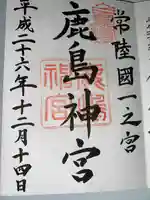 常陸國一之宮
鹿島神宮
平成二十六年十二月十四日